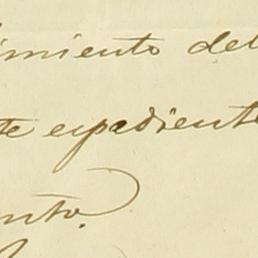 imiento del
te espediente
ento.